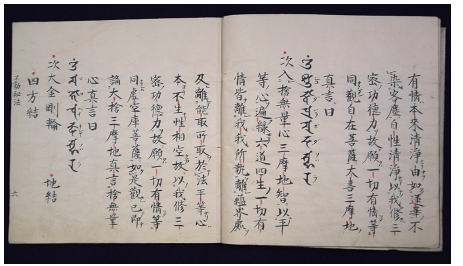 有情本来清淨由如蓮華不
染客塵自性清淨以我修三
密功德力故願一切有情等
同觀自在菩薩大喜三摩地
真言曰
次入捨無量心三摩地智以平
等心遍縁六道四生一切有
情皆離我我所離蘊界處
及離能取所取於法平等心
本不生性相空故以我修三
密功德力故願一切有情等
同虚空庫菩薩如是觀已即
誦大捨三摩地真言捨無量
心真言曰
次大金剛輪 地結
四方結
六